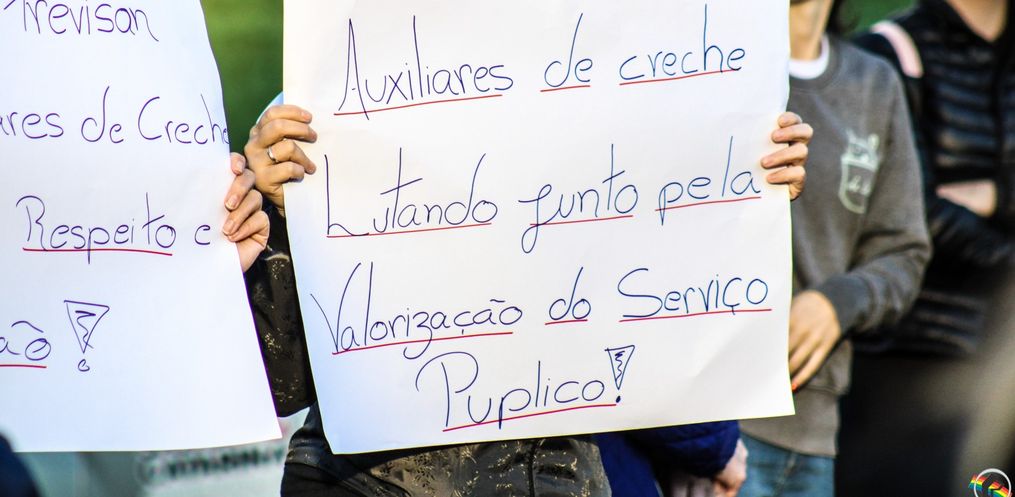 Trevisan
ares de Creche
Respeito e
ão!
Auxiliares de creche
Lutando junto pela
Valorização do Serviço
Puplico!